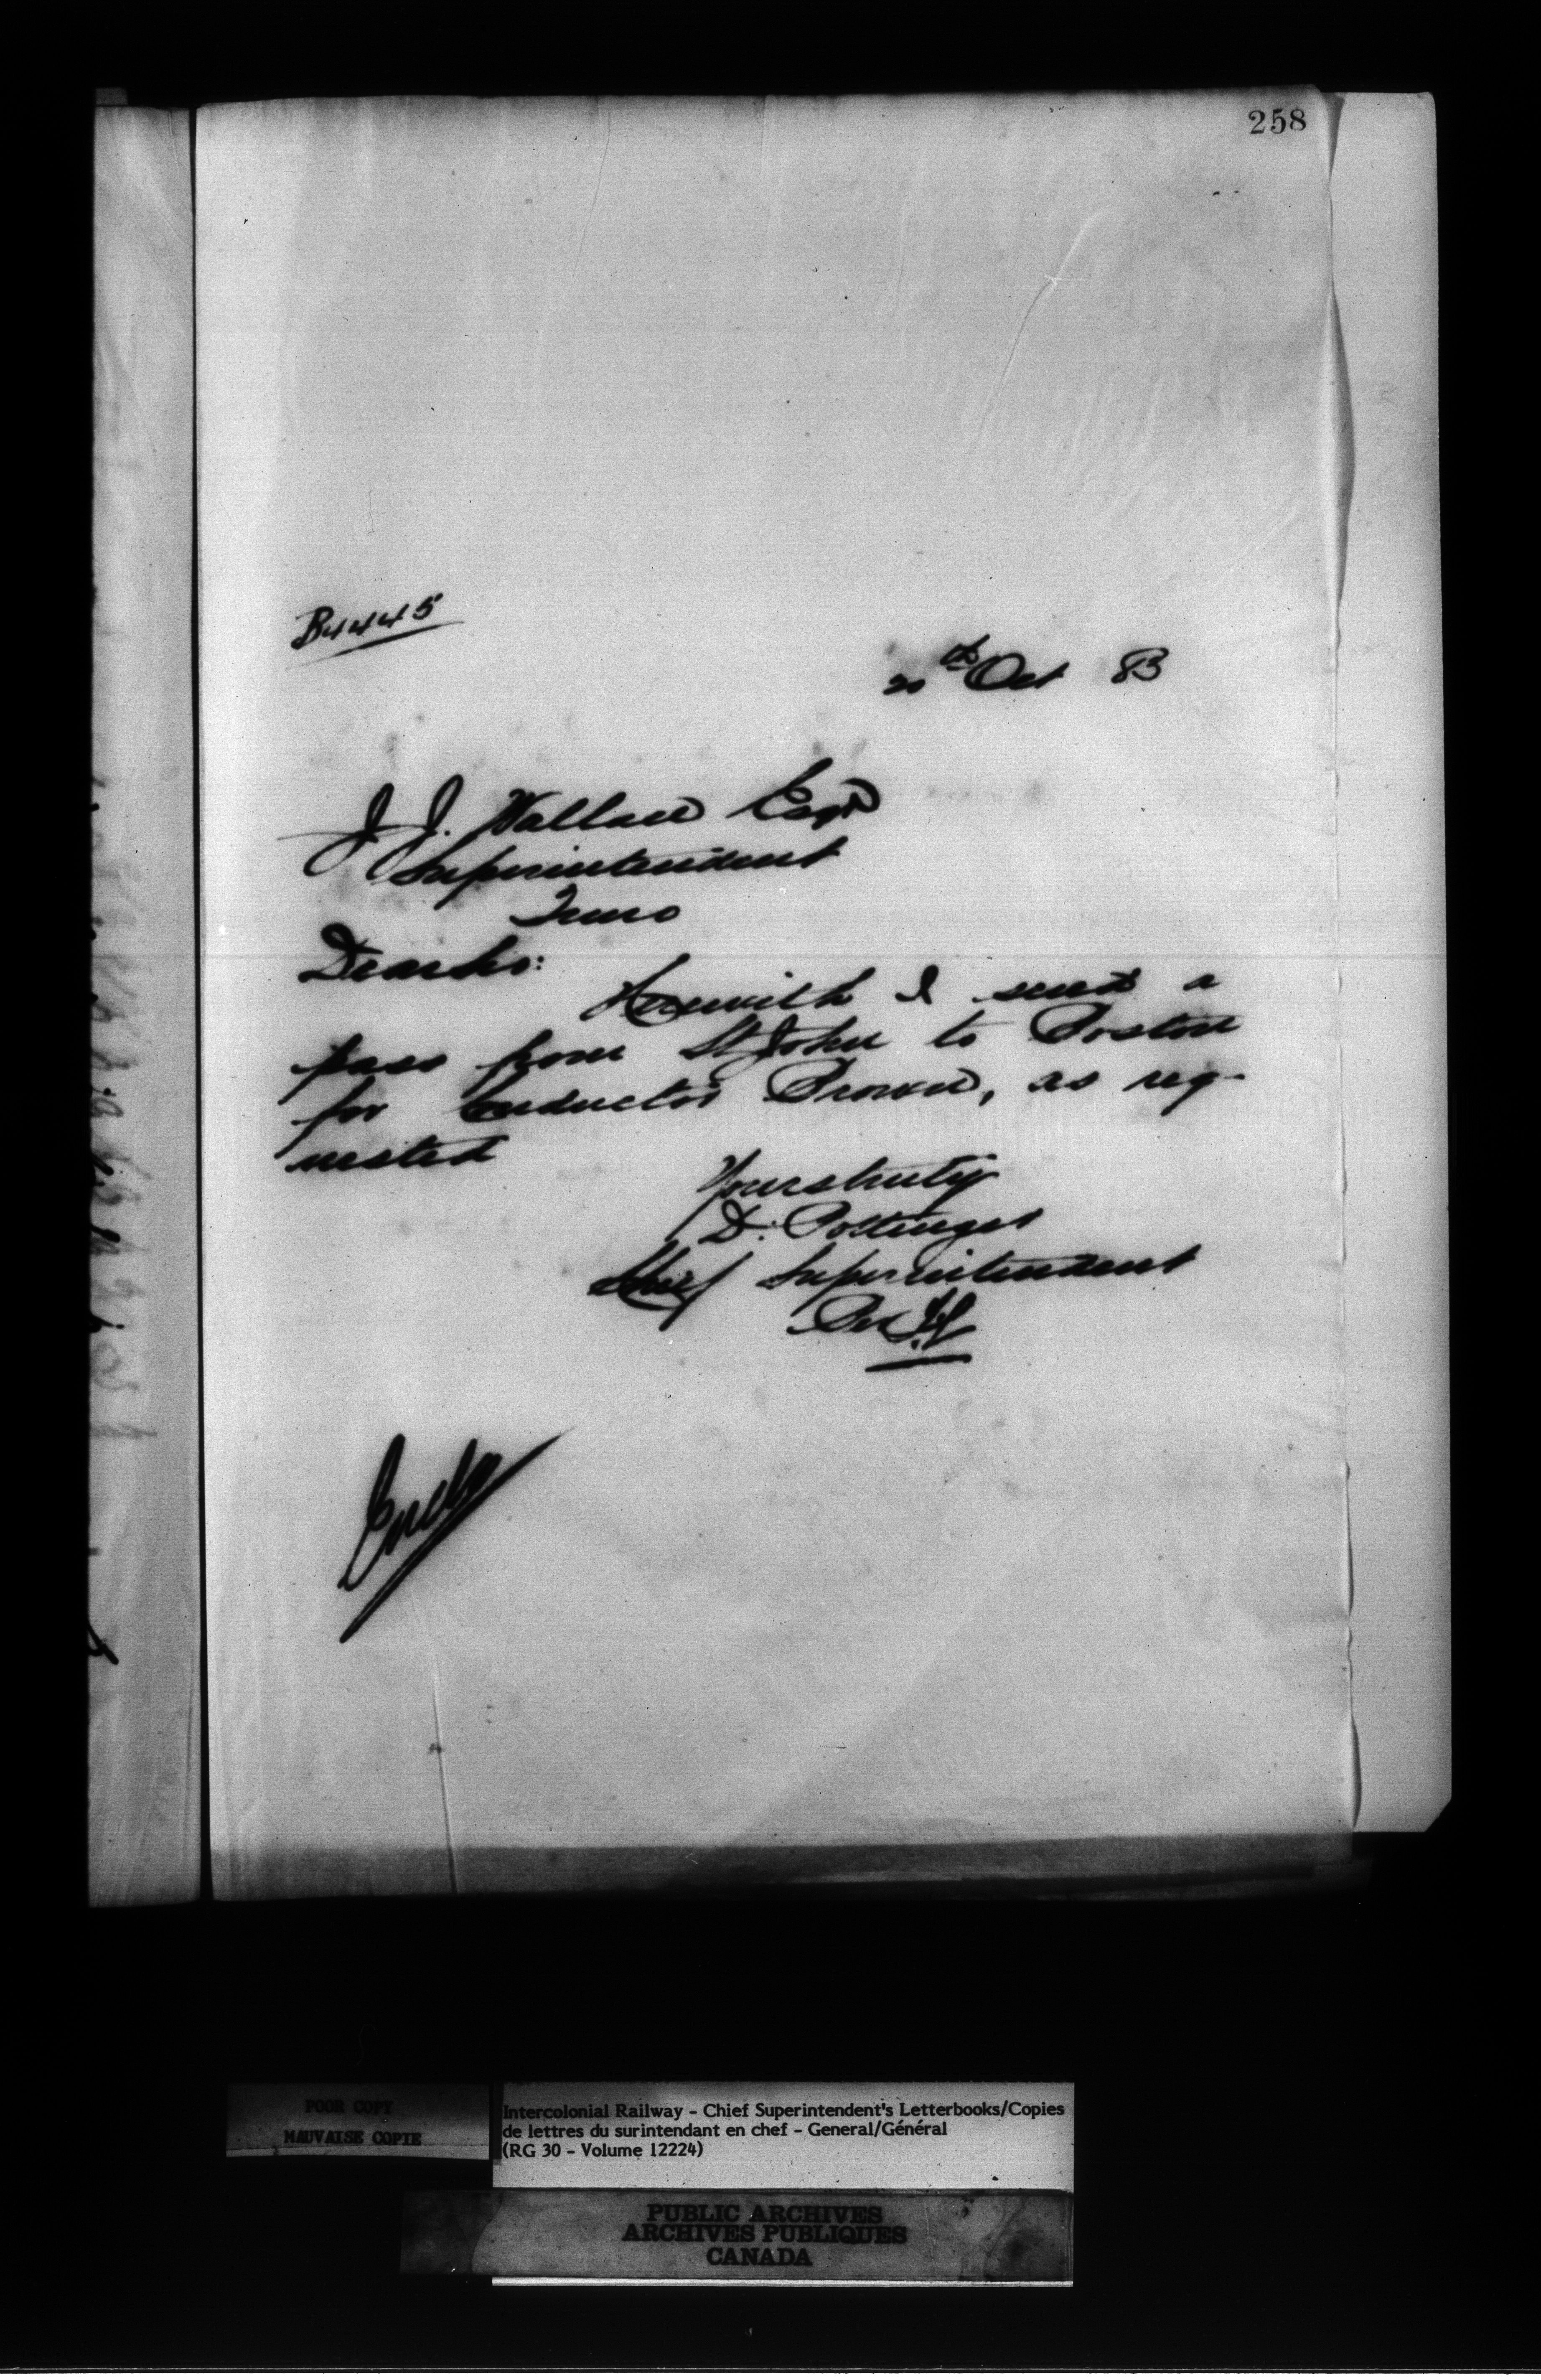 258
B4445
20th Oct 83
J. J. Wallace Esqr
Superintendent
Truro
Dear Sir:
Herewith I send a
pass from St John to Boston
for Conductor Brown, as req-
uested
Yours truly
D. Pottinger
Chief Superintendent
Per
Encls
POOR COPY
MAUVAISE COPIE
Intercolonial Railway - Chief Superintendent's Letterbooks/Copies
de lettres du surintendant en chef - General/Général
(RG 30 - Volume 12224)
PUBLIC ARCHIVES
ARCHIVES PUBLIQUES
CANADA